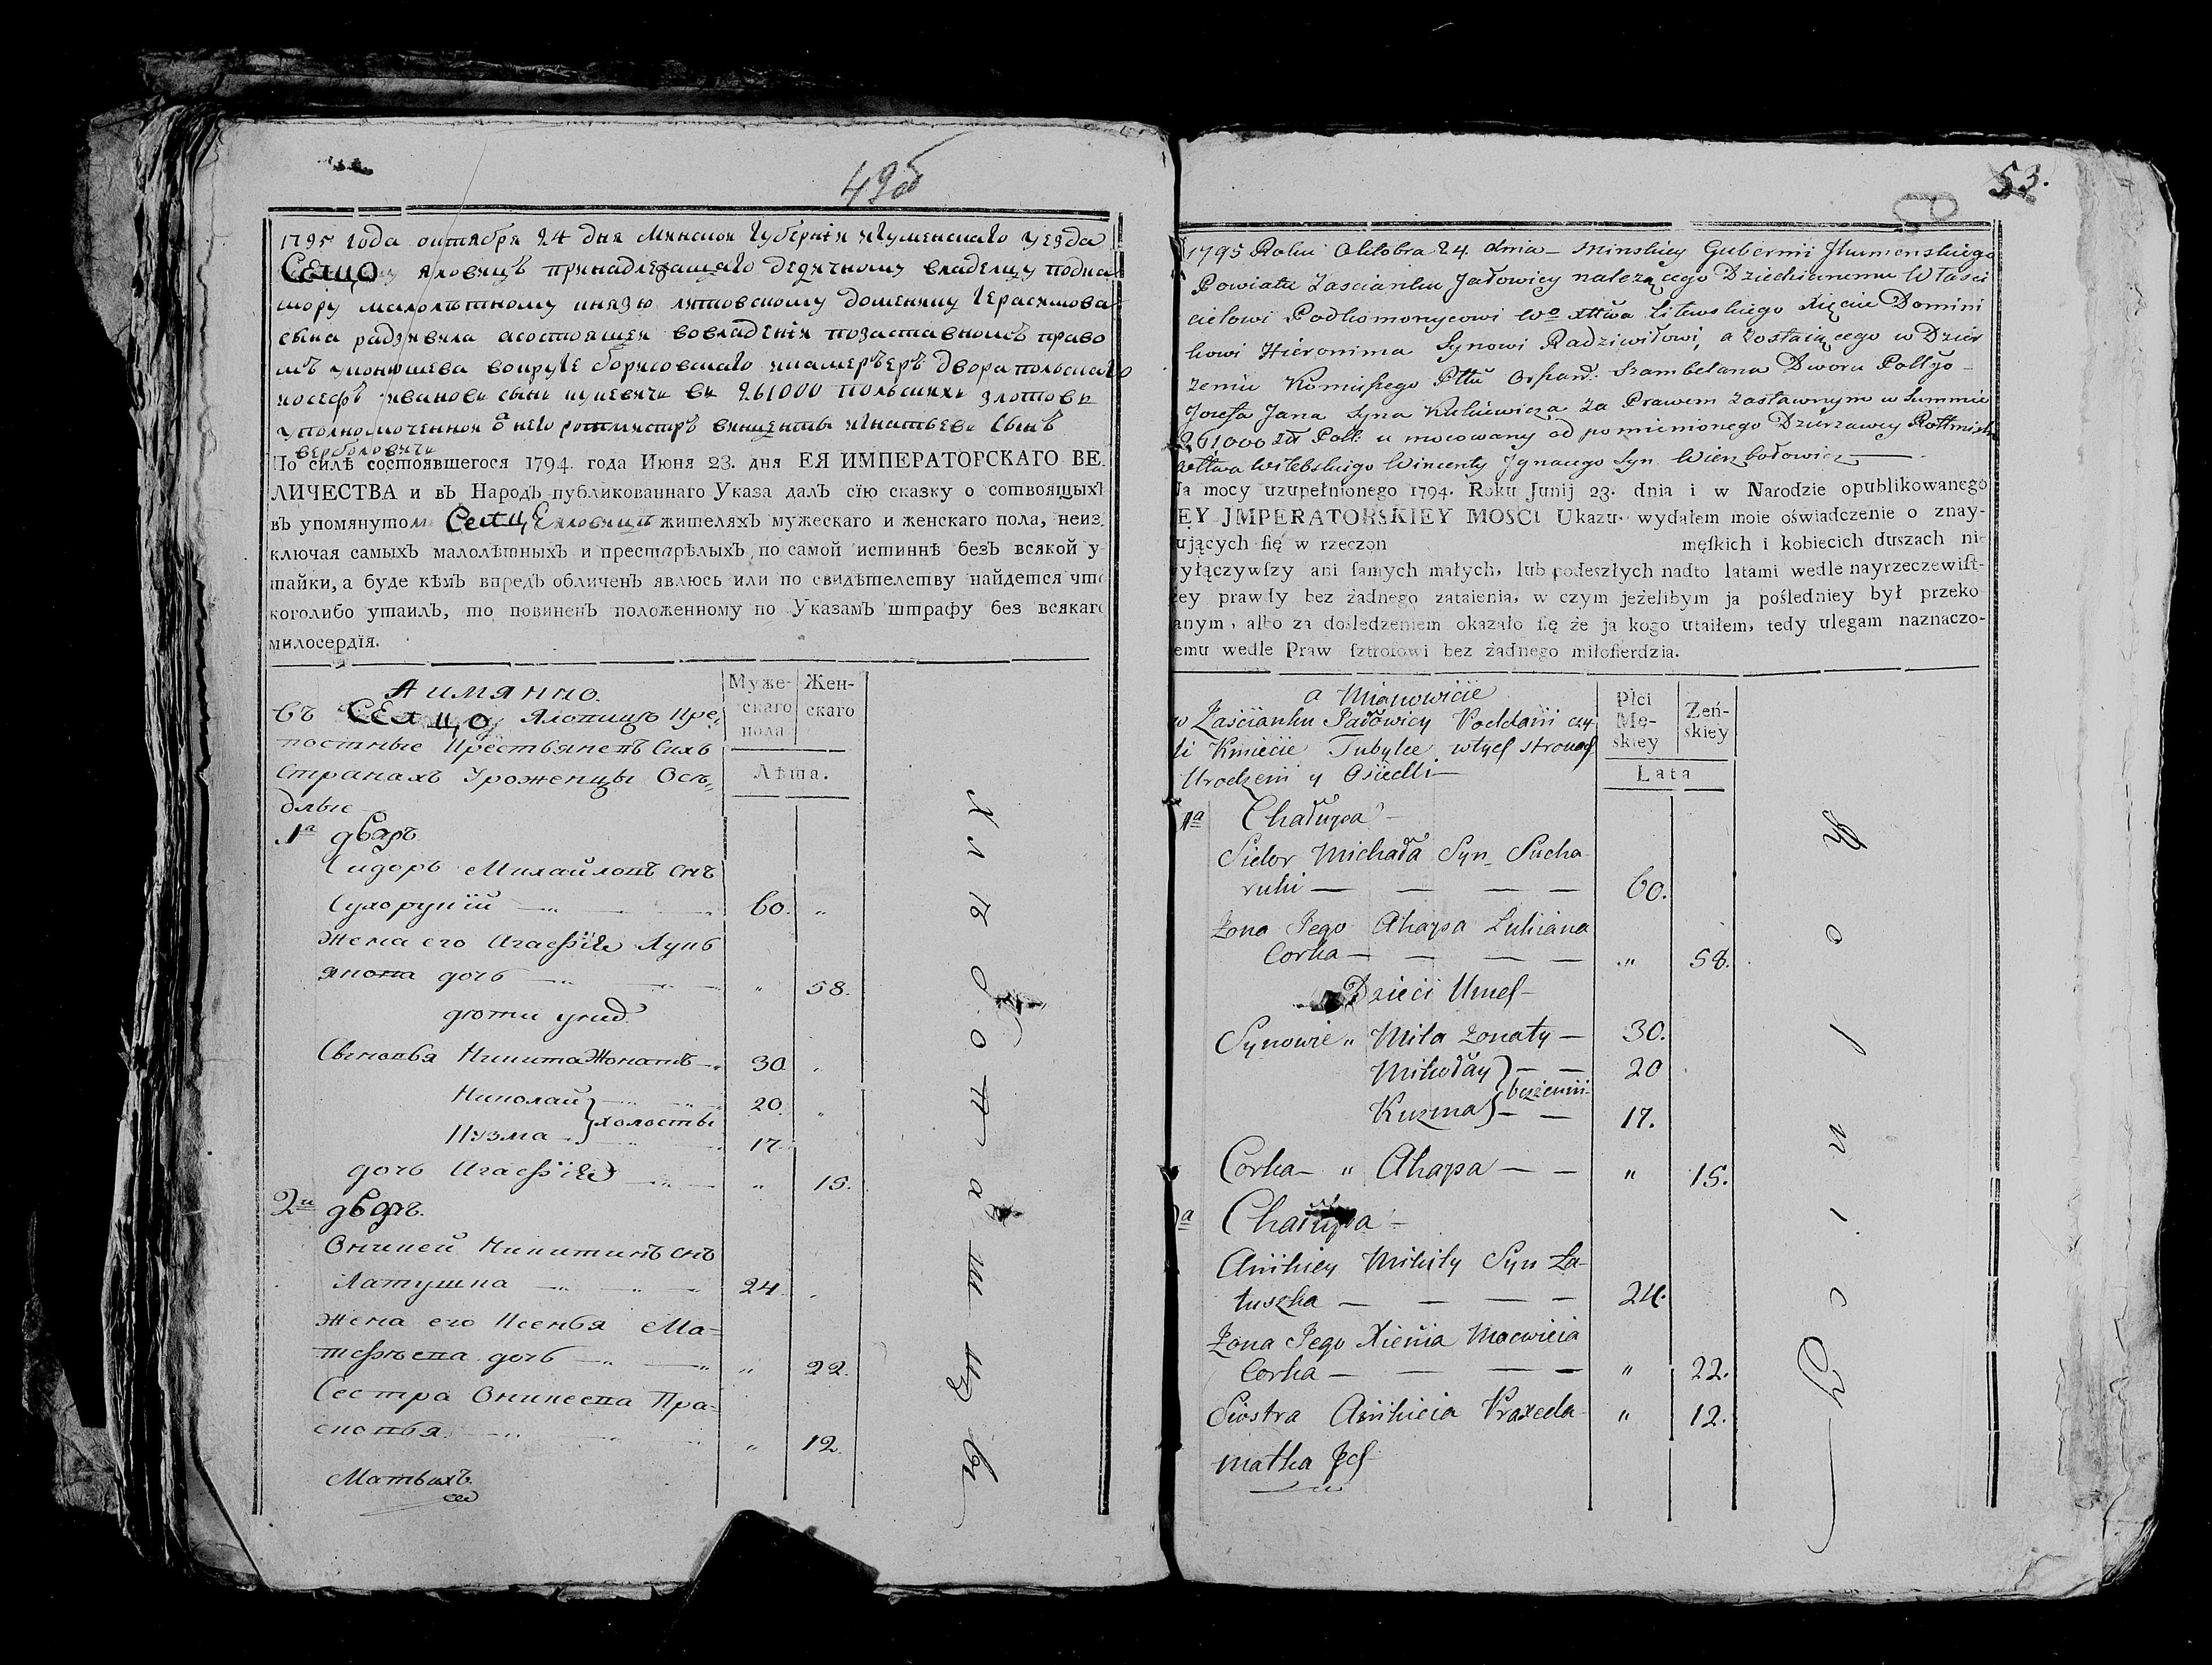 49об
1795 года октября 24 дня Минской губерніи игуменскаго уезда
Селцо яловицъ принадлежащаго дедичному владелцу подко
мору малолѣтному князю литовскому доменику Герасимова
сына радзивила а состоящей вовладеніи позаставномъ право
мъ укоюшева вокруге борисовскаго камерҍеръ Двора полскаго
иосефъ иванови сынъ кулевичи ви 261000 полскихи злотови
уполномоченной ѿ него ротмистръ викценты игнатьеви Сынъ
верболовичи
По силѣ состоявшегося 1794. года Июня 23. дня ЕЯ ИМПЕРАТОРСКАГО ВЕ-
ЛИЧЕСТВА и въ Народъ публикованнаго Указа далъ сїю сказку о сотвоящыхъ
въ упомянутом Селцѣ Еловицы жителяхъ мужескаго и женскаго пола, неиз-
ключая самыхъ малолѣтныхъ и престарѣлыхъ, по самой истиннѣ безъ всякой у-
тайки, а буде кѣмъ впредь обличенъ явлюсь или по свидѣтелству найдется что
коголибо утаилъ, то повиненъ положенному по Указамъ штрафу без всякаго
милосердїя.
А имянно.
Муже-
скаго
пола
Жен-
скаго
въ Селцо Яловицъ Кре-
постные Крестьяне въ Сихъ
Странахъ Уроженцы Осѣ-
длые
Лѣта.
1а дворъ
Сидоръ Михайловъ снъ
Сухорукїй 60. „
Жена его Агафія Лукь
янова дочь „ 58.
дети ихъ
Сыновья Никита Жонатъ 30. „
Николай 20. „
холосты
Кузма 17.
дочь Агафія „ 15.
2й дворъ.
Оникей Никитинъ снъ
Латушка 24. „
Жена его Ксенья Ма-
тфѣева дочь „ 22.
Сестра Оникеева Пра-
сковья „ 12.
Мать ихъ
53.
1795 Roku Oktobra 24. dnia Minskiey Gubernii Jhumenskiego
Powiatu Zascianku Jałowicy należącego Dziedzicznemu Własci
cielowi Podkomorycowi Wo Xttwa Litewskiego Xięciu Domini
kowi Hieronima Synowi Radziwiłowi, a zostaiącego w Dzier
żeniu Komissego Pttu Orszań: Szambelana Dworu Polłgo
Jozefa Jana Syna Kulewicza za Prawem zastawnym w Summie
261000 Złł Poll: u mocowany od pomienionego Dzierzawcy Rottmistr
Wttwa Witebskiego Wincenty Jgnacego Syn Wierzbołowicz
Na mocy uzupełnionego 1794. Roku Junij 23. dnia i w Narodzie opublikowanego
EY JMPERATORSKIEY MOSCI Ukazu. wydałem moie oświadczenie o znay-
ujących ſię w rzeczon męſkich i kobiecich duszach nie
yłączywſzy ani ſamych małych, lub podeszłych nadto latami wedle nayrzeczewiſt-
zey prawdy bez żadnego zataienia, w czym jeżelibym ja poślednieyby był przeko
anym, albo za dośledzeniem okazało ſię że ja kogo utaiłem, tedy ulegam naznaczo-
emu wedle Praw ſztrofowi bez żadnego miłoſierdzia.
a Mianowicie
w Zaścianku Jałowicy Poddani czy
li Kmiecie Tubylce wtych stronach
Urodzeni y Osiedli
Płci
Mę-
skiey
Zeń-
skiey
Lata
1a Chałupa
Sidor Michała Syn Sucha-
ruki 60.
Zona Jego Ahapa Lukiana
Corka „ 58.
Dzieci Umeſ
Synowie „ Mikita żonaty 30.
Mikołay 20
bezżenni
Kuzma 17.
Corka „ Ahapa „ 15.
a Chałupa
Anikiey Mikity Syn Ła-
tuszka 24.
Zona Jego Xienia Macwieia
Corka „ 22.
Siostra Anikieia Praxeda „ 12.
matka Jch